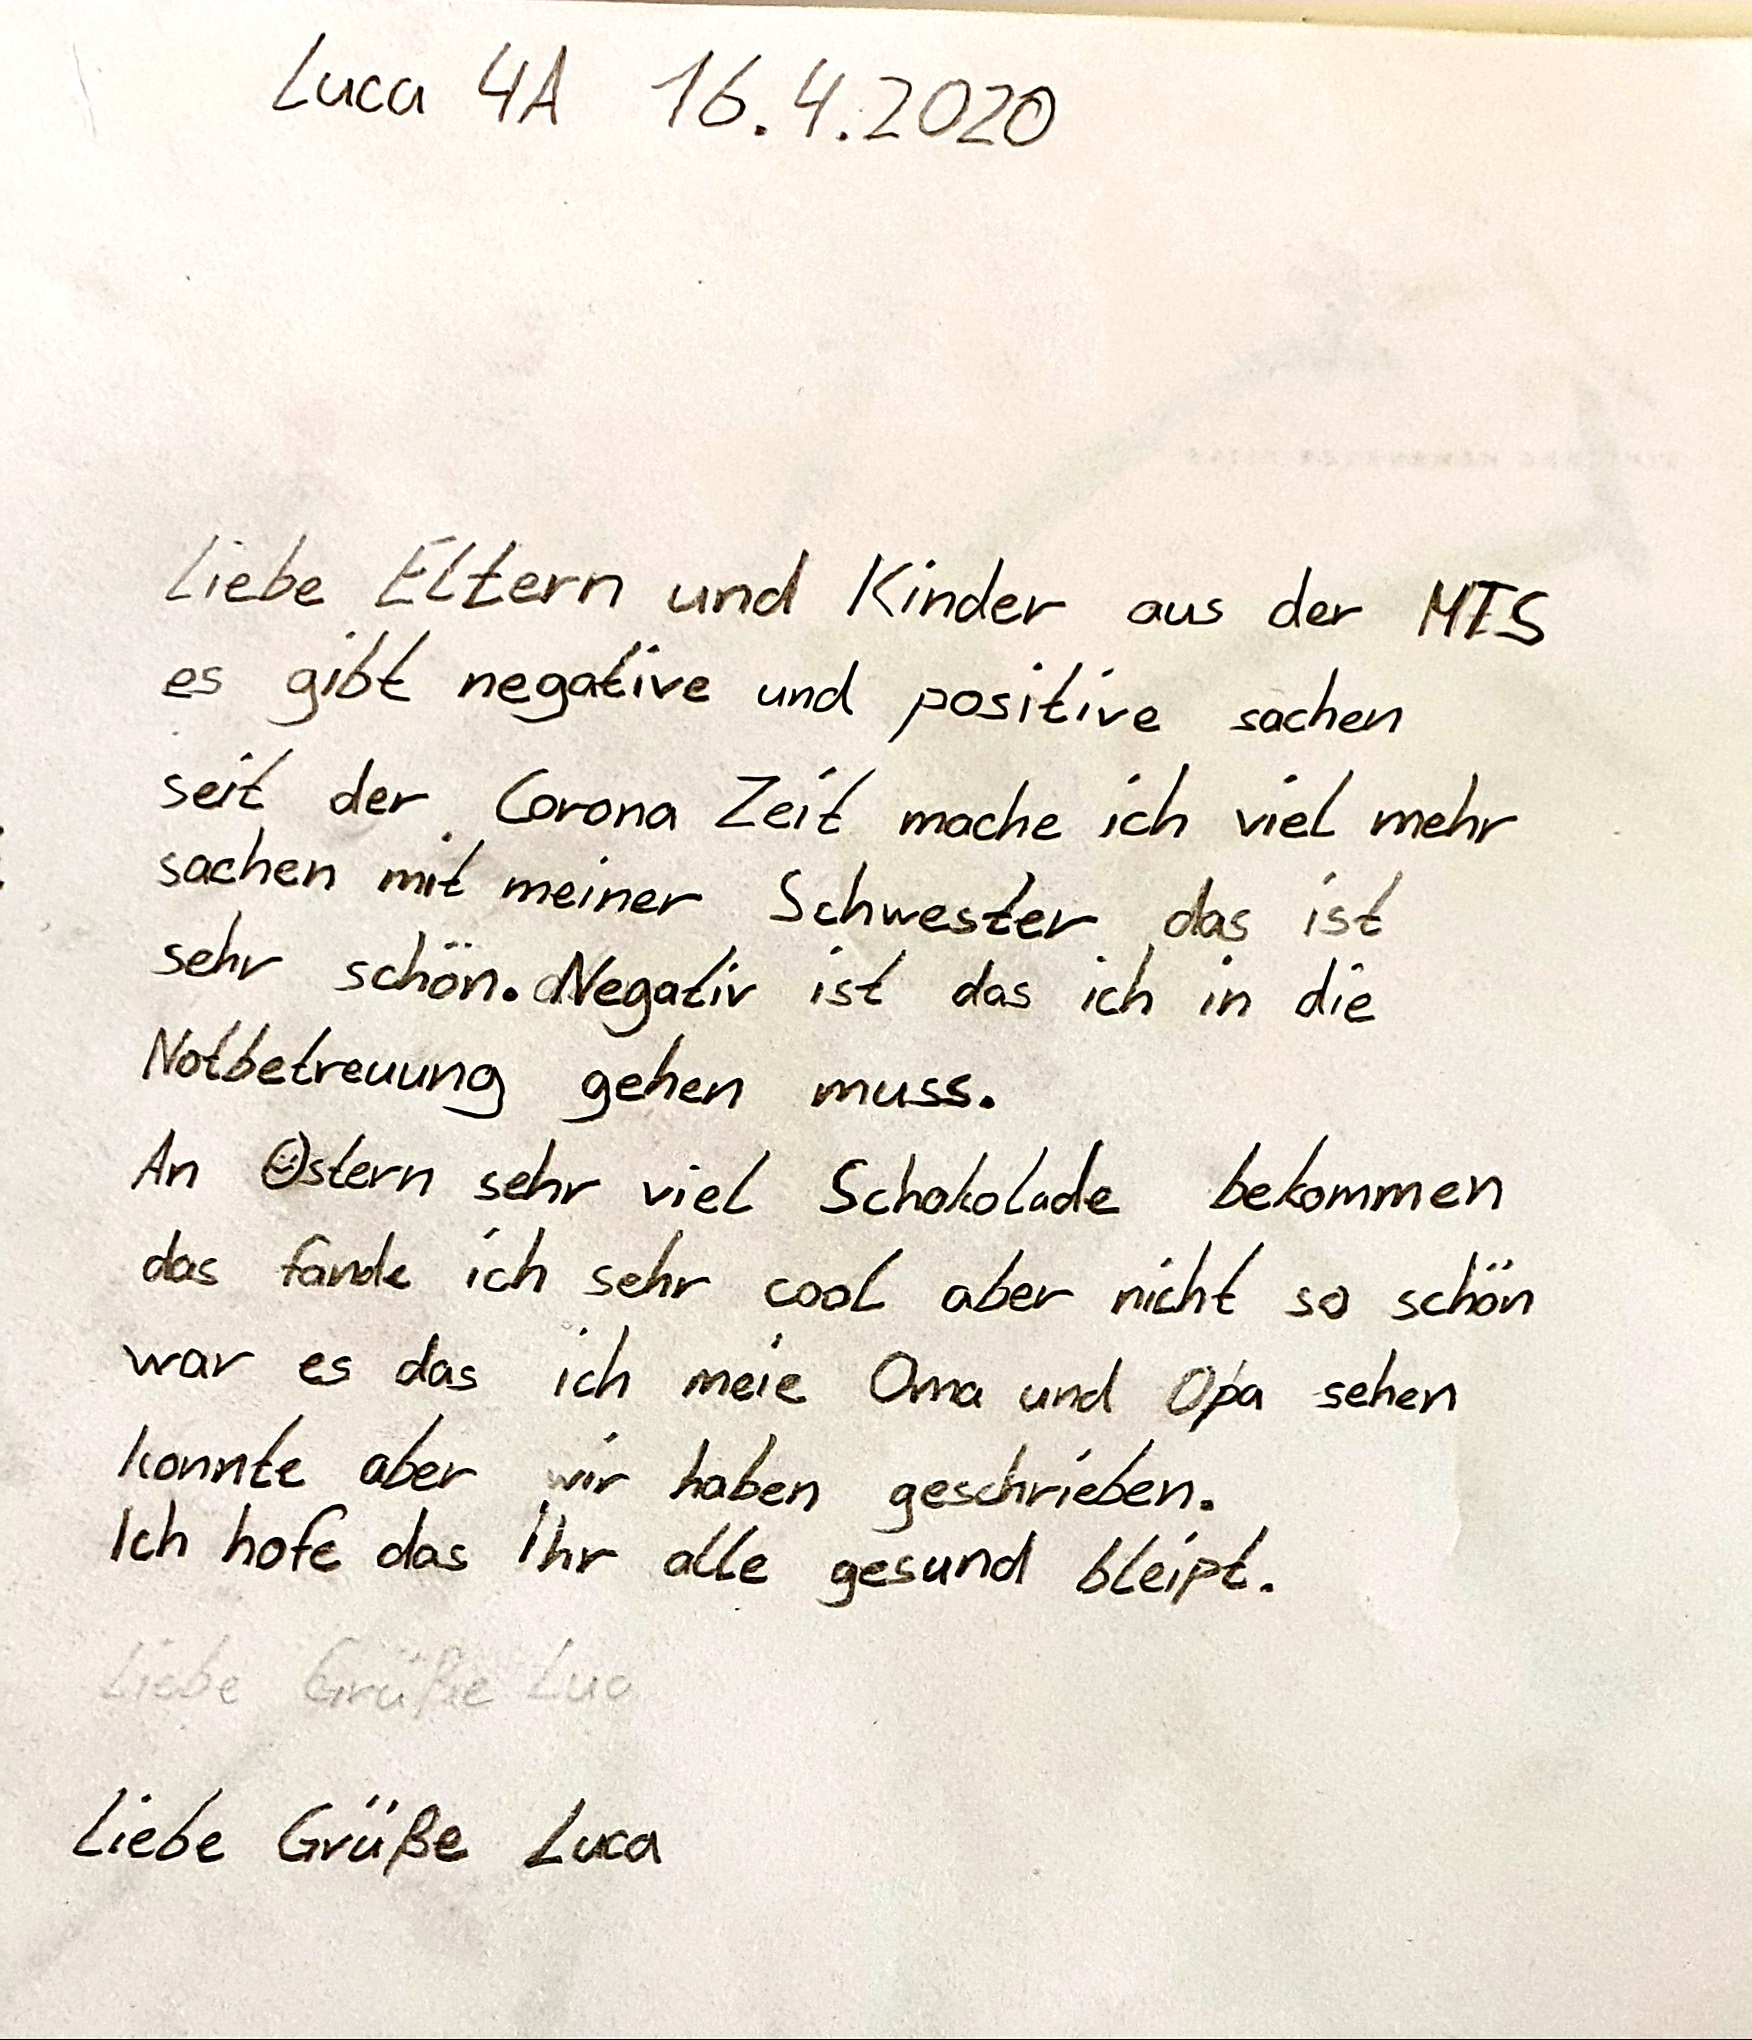 Luca 4A 16.4.2020
Liebe Eltern und Kinder aus der MTS
es gibt negative und positive sachen
seit der Corona Zeit mache ich viel mehr
sachen mit meiner Schwester das ist
sehr schön. Negativ ist das ich in die
Notbetreuung gehen muss.
An Ostern sehr viel Schokolade bekommen
das fande ich sehr cool aber nicht so schön
war es das ich meie Oma und Opa sehen
konnte aber wir haben geschrieben.
Ich hofe das Ihr alle gesund bleipt.
Liebe Grüße Luc
Liebe Grüße Luca